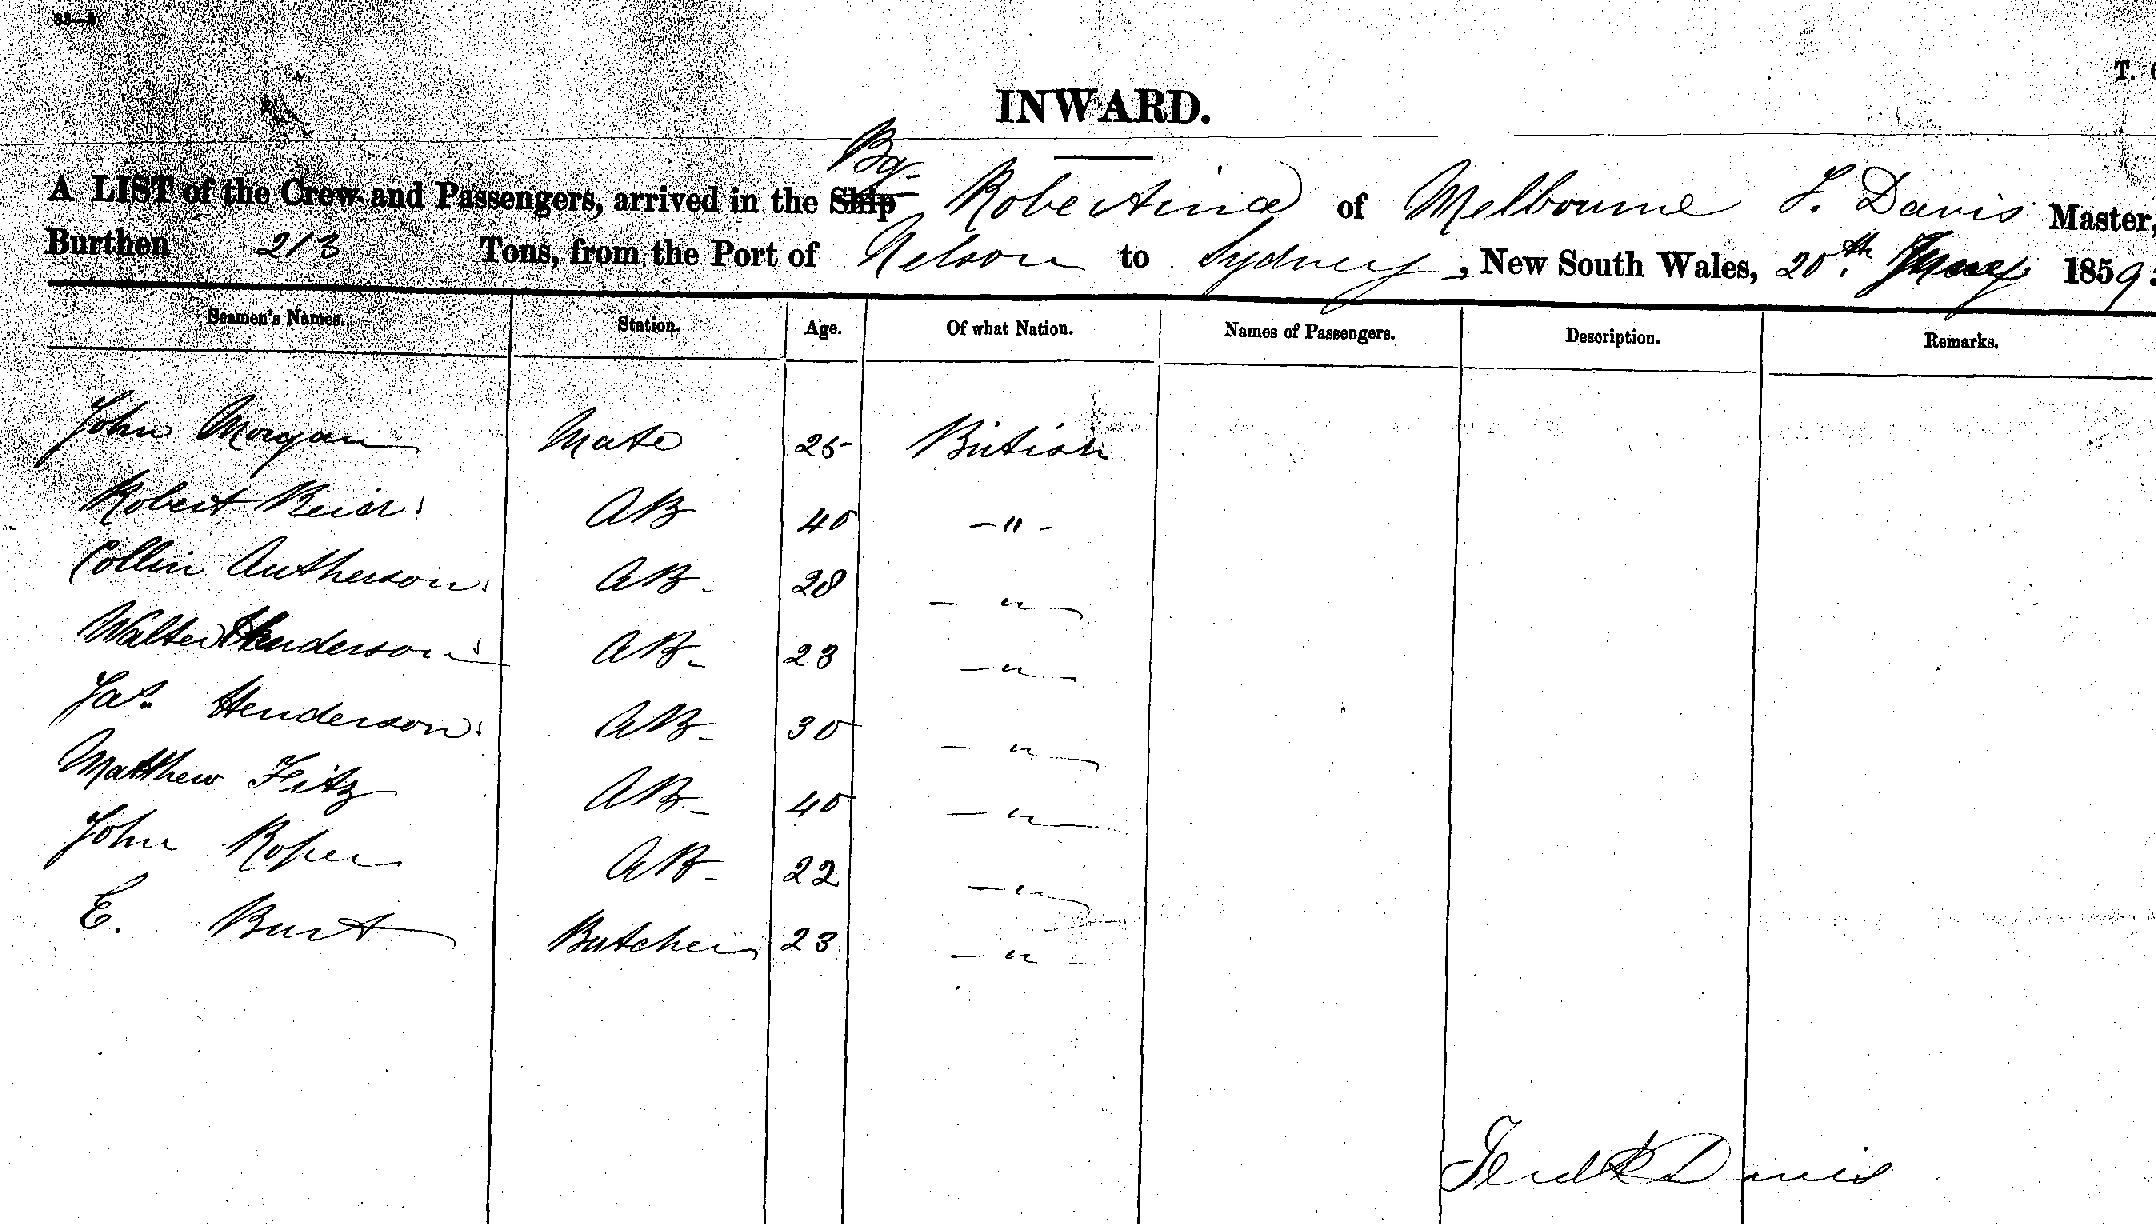 INWARD.
A LIST of the Crew and Passengers, arrived in the Ship Bq. Robertina of Melbourne F. Davis Master,
Burthen 213 Tons, from the Port of Nelson to Sydney, New South Wales, 20th 1859
Seamen's Names. Station. Age. Of what Nation. Names of Passengers. Description. Remarks.
John Morgan Mate 25 British
Robert AB 40 — " —
Collin Autherson AB 28 — " —
Walter Henderson AB 23 — " —
Jas. Henderson AB 30 — " —
Matthew Fitz AB 40 — " —
John Roper AB 22 — " —
E. Burt Butcher 23 — " —
Fredk Davis